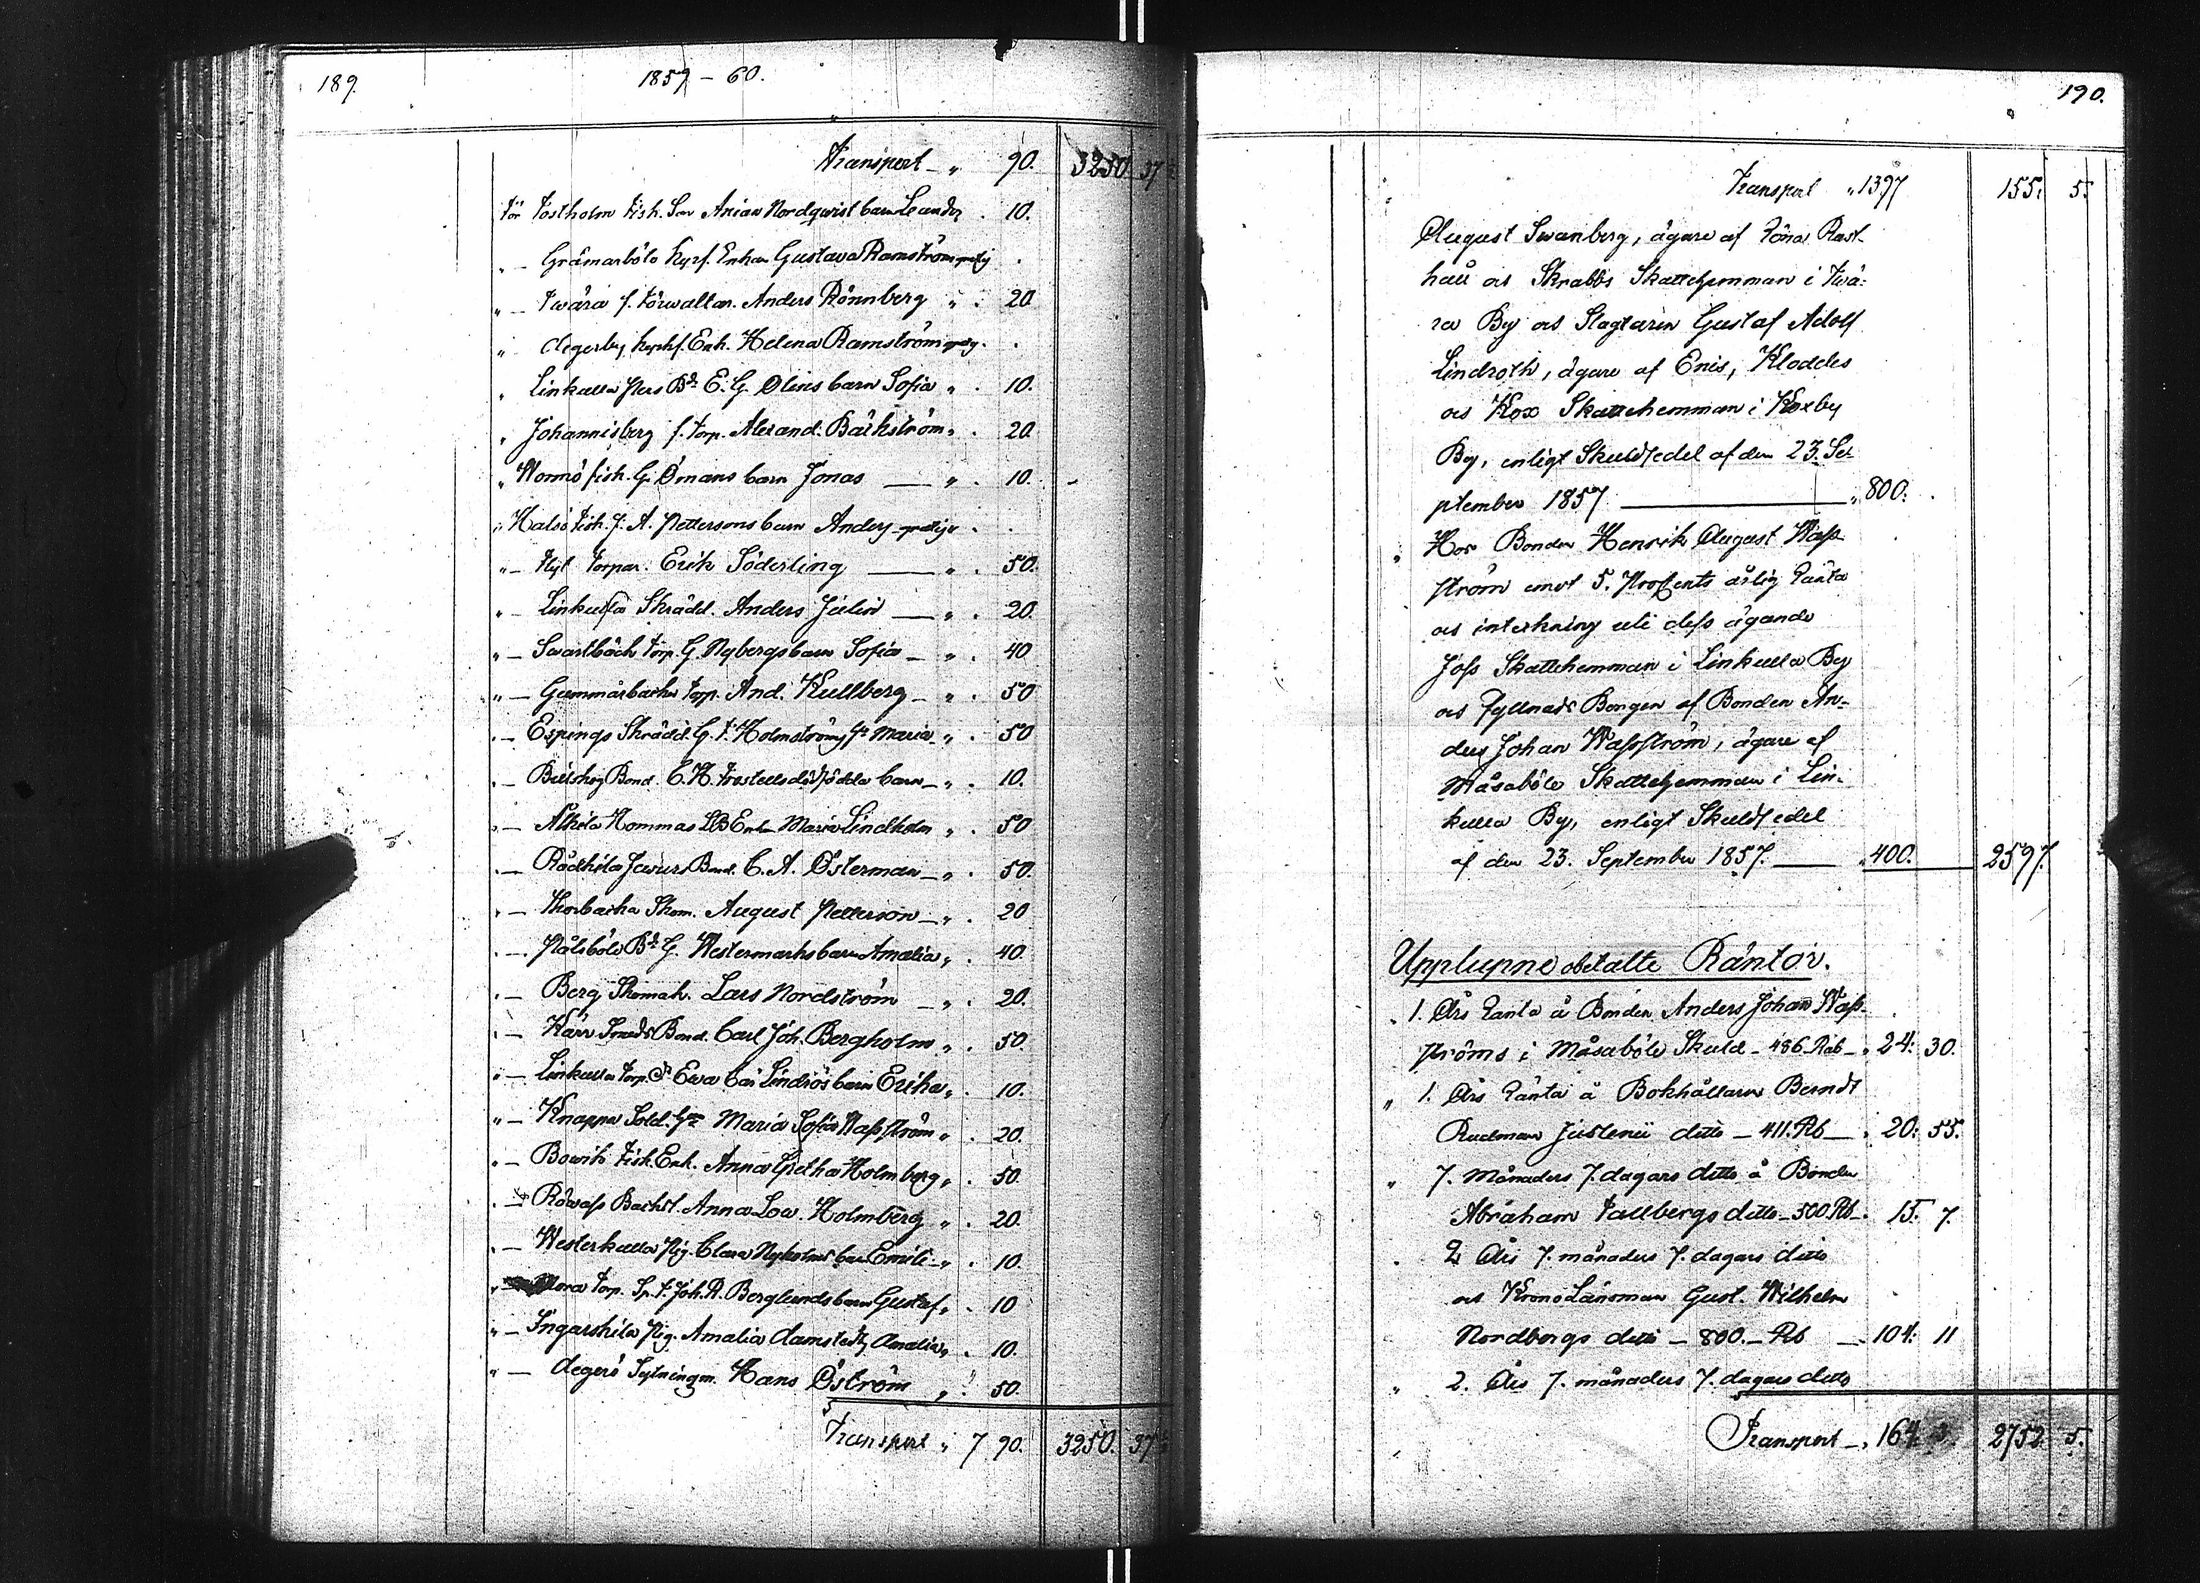 189.
1859 – 60.
Transport – " 90. 3250. 37
för Tostholm Fisk. Son Arian Nordqvist barn Leander . 10.
" – Gråmarböle Hyrf. Enkan Gustava Ramström gratis .
" – Twärå f. Förwaltar. Anders Rönnberg " . 20
" – degerby, Enk. Helena Ramström .
" Linkulla Bd. E. G. Olins barn Sofia " . 10.
" Johannisberg f. Torp. Alexand. Bäckström " . 20
" Wormö fisk. G. Ömans barn Jonas — " . 10.
" Halsö Fisk. J. A. Pettersons barn Anders gratis .
" – Torpar. Erik Söderling — " . 50.
" – Linkulla Skrädd. Anders Julin — " . 20.
" – Swartbäck Torp. G. Nybergs barn Sofia – " . 40
" – Gummarbacka Torp. And. Kullberg – " . 50
" – Espings Skrädd. G. F. Holmströms Maria – " . 50
" – Bond. C. H. barn – " . 10.
" – Alkila Hommas Enk. Maria Lindholm " . 50
" – Rådkila Bond. C. A. Österman – " . 50.
" – Skom. August Petterson – " . 20
" – Pålsböle Bd. G. Westermarks barn Amalia " . 40.
" – Berg Skomak. Lars Nordström – " . 20.
" – Kärr Smeds Bond. Carl Joh. Bergholm " . 50.
" – Linkulla Torp. Ewa Lindrös barn Erika " . 10.
" – Knappa Sold. Maria Sofia Wasström " . 20.
" – Bowik Fisk. Enk. Anna Gretha Holmberg " . 50.
" – Röwass Backst. Anna Lov. Holmberg " . 20.
" – Westerkulla Pig. Clara Nyholms barn Emili – " . 10.
" – Torp. Joh. R. Berglunds barn Gustaf " . 10
" – Ingarskila Pig. Amalia Damstedts Amalia " . 10.
" – degerö Sytningm. Hans Öström " . 50.
Transport " 7. 90. 3250. 37
190.
Transport " 1397 155. 5.
August Swanberg, ägare af Röna Rast-
hau os Skrabbs Skattehemman i Twä-
rå By os Slagtaren Gustaf Adolf
Lindroth, ägare af Enis, Kloddes
os Kox Skattehemman i Koxby
By, enligt Skuldsedel af den 23. Se-
ptember 1857 — " 800.
" Hos Bonden Henrik August Wass-
ström emot 5. Procents årlig ränta
os inteckning uti dess ägande
Joss Skattehemman i Linkulla By
os fyllnads Borgen af Bonden An-
ders Johan Wassström, ägare af
Måsaböle Skattehemman i Lin-
kulla By, enligt Skuldsedel
af den 23. September 1857. — " 400. 2597.
Upplupne obetalte Räntor.
" 1. Års ränta å Bonden Anders Johan Wass-
ströms i Måsaböle Skuld – 486. Rub – " 24. 30.
" 1. Års ränta å Bokhållaren Berndt
Rudman Juslenii ditto – 411. Rb – " 20. 55.
" 7. Månaders 7. dagars ditto å Bonden
Abraham Tallbergs ditto – 500 Rb – . 15. 7.
" 2 Års 7. månaders 7. dagars ditto
os KronoLänsman Gust. Wilhelm
Nordbergs ditto – 800. – Rb — . 104. 11
" 2. Års 7. månaders 7. dagars ditto
Transport – " 164. 3. 2752. 5.